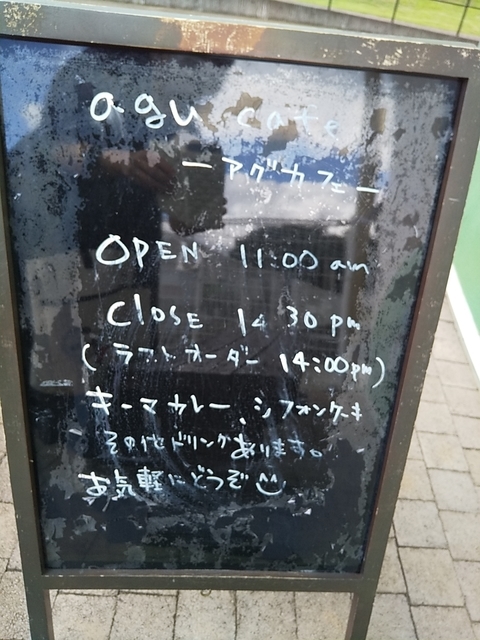 agu cafe
ーアグカフェー
OPEN 11:00 am
CLOSE 14 30 pm
(ラストオーダー 14:00pm)
キーマカレー、シフォンケーキ
その他ドリンクあります。
お気軽にどうぞ